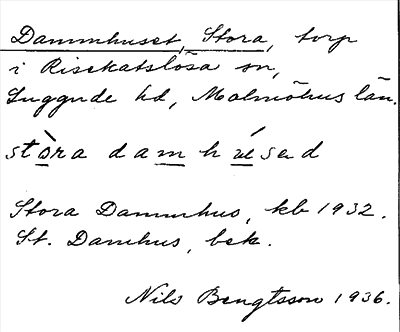 Dammhuset, Stora, torp
i Risekatslösa sn,
Luggude hd, Malmöhus län.
stòra damhúsed
Stora Dammhus, kb 1932.
St. Damhus, bek.
Nils Bengtsson 1936.